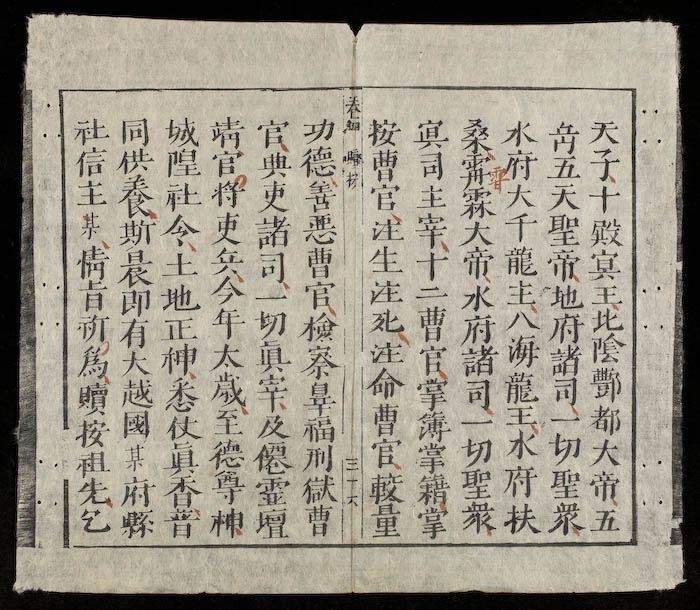 天子十殿冥王北陰酆都大帝五
岳五天聖帝地府諸司一切聖衆
水府大千龍主八海龍王水府扶
桑霖大帝水府諸司一切聖衆
冥司主宰十二曹官掌簿掌籍掌
按曹官注生注死注命曹官較量
三十六
功德善惡曹官檢察辠福刑獄曹
官典吏諸司一切眞宰及僊靈壇
靖官將吏兵今年太歲至德尊神
城隍社令土地正神悉仗眞香普
同供養斯晨即有大越國某府縣
社信主某情旨祈爲贖按祖先乞